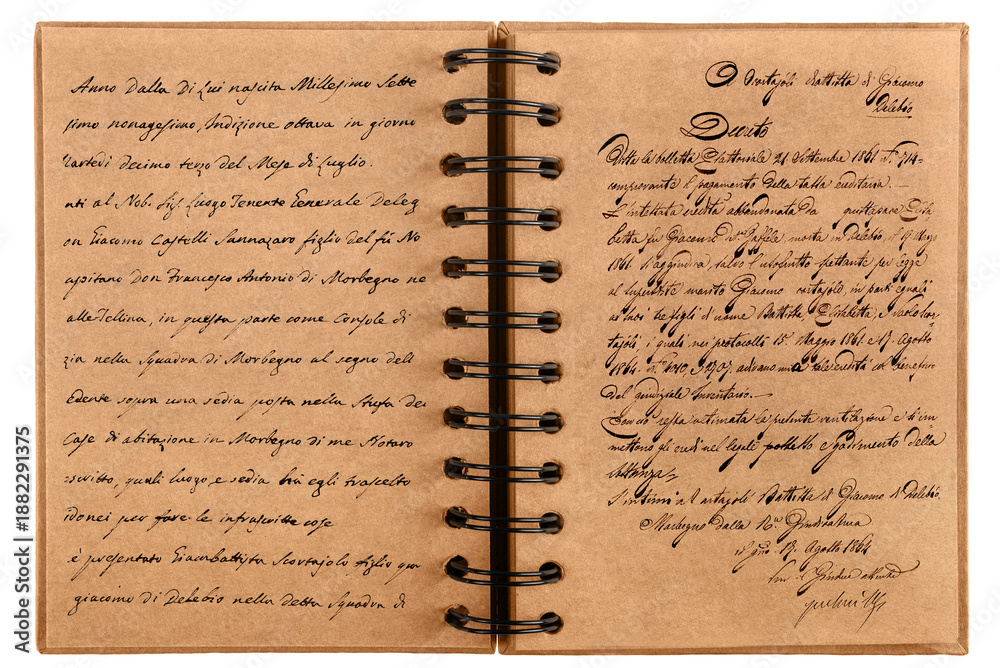 Anno Dalla Di Lui nascita Millesimo Sette
simo nonagesimo, Indizione ottava in giorno
Martedì Decimo terzo Del Mese di Luglio.
nti al Nob. Sig. Luogo Tenente Generale Deleg
on Giacomo Castelli Sannazaro figlio del fú No
aspitano Don Francesco Antonio di Morbegno ne
alle Tellina, in questa parte come Console di
zia nella Squadra di Morbegno al segno dell
Edente sopra una sedia posta nella Stufa del
Case di abitazione in Morbegno di me Notaro
scritto, quali luogo, e sedia hà egli trascelto
idonei per fare le infrascritte cose
è presentato Giacobattista Scortajolo figlio qm
giacomo di Delebio nella detta Squadra di
A Cortajoli Battista di Giacomo
Delebio
Decreto
Vista la bolletta Esattoriale 21 Settembre 1861 N. 714
comprovante il pagamento della tassa ereditaria.
L'intestata eredità abbandonata da Elisa
betta fu Giacomo morta in Delebio, il 19 Marzo
1861. S'aggiudica, salvo l'usofrutto spettante per legge
al superstite marito Giacomo cortajolo, in parti eguali
ai suoi figli di nome Battista Elisabetta, e
i quali nei protocolli 15 Maggio 1861. e 17. Agosto
1864. N. 3010 3707, adivano una tale eredità col beneficio
Del giudiziale Inventario.
Con ciò resta ultimata la presente ventilazione e si im
mettono gli eredi nel legale possesso e godimento della
sostanza
S'intimi a Cortajoli Battista di Giacomo di Delebio.
Morbegno dalla Ra. Giudicatura
il giorno 17. Agosto 1864
Giudice
Adobe Stock | #1882291375